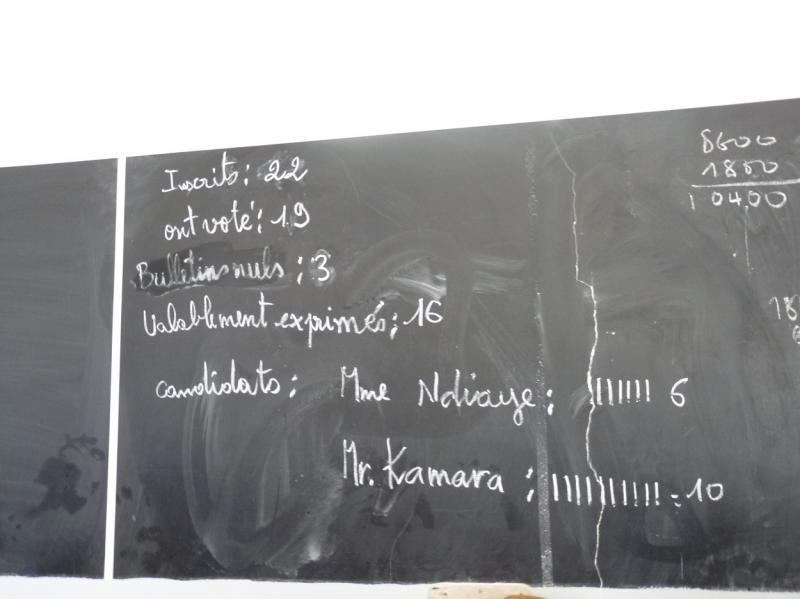 Inscrits : 22
ont voté : 19
Bulletins nuls : 3
Valablement exprimés : 16
candidats : Mme Ndiaye : |||||| 6
Mr. Kamara : |||||||||| = 10
8600
1800
10400